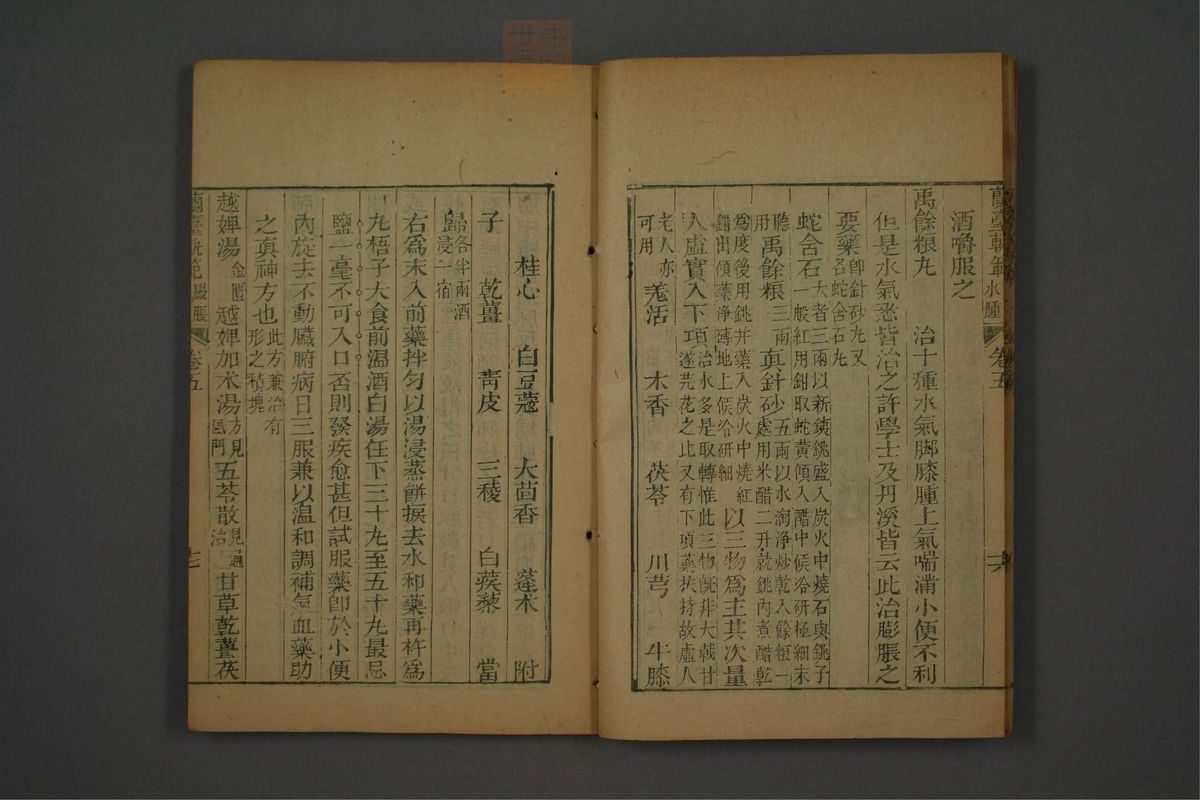 蘭臺軌範 水腫 卷五 十六
酒嚼服之
禹餘粮丸 治十種水氣脚膝腫上氣喘滿小便不利
但是水氣悉皆治之許學士及丹溪皆云此治膨脹之
要藥 卽針砂丸又名蛇舍石丸
蛇舍石 大者三兩以新鐵銚盛入炭火中燒石與銚子一般紅用鉗取蛇黄傾入醋中候冷研極細末聽用 禹餘粮 三兩 真針砂 五兩以水淘淨炒乾入餘粮一處用米醋二升就銚內煮醋乾爲度後用銚并藥入炭火中燒紅鉗出傾藥淨磚地上候冷研細 以三物爲主其次量
人虛實入下項 治水多是取轉惟此三物旣非大戟甘遂芫花之比又有下項藥扶持故虛人老人亦可用
羗活 木香 茯苓 川芎 牛膝
桂心 白豆蔻 大茴香 蓬朮 附
子 乾薑 靑皮 三稜 白蒺藜 當
歸 各半兩酒浸一宿
右爲末入前藥拌勻以湯浸蒸餅捩去水和藥再杵爲
丸梧子大食前温酒白湯任下三十丸至五十丸最忌
鹽一毫不可入口否則發疾愈甚但試服藥卽於小便
內旋去不動臟腑病日三服兼以温和調補氣血藥助
之真神方也 此方兼治有形之積塊
越婢湯 金匱 越婢加朮湯 方見風門 五苓散 見通治 甘草乾薑茯
蘭臺軌範 脹 卷五 十七